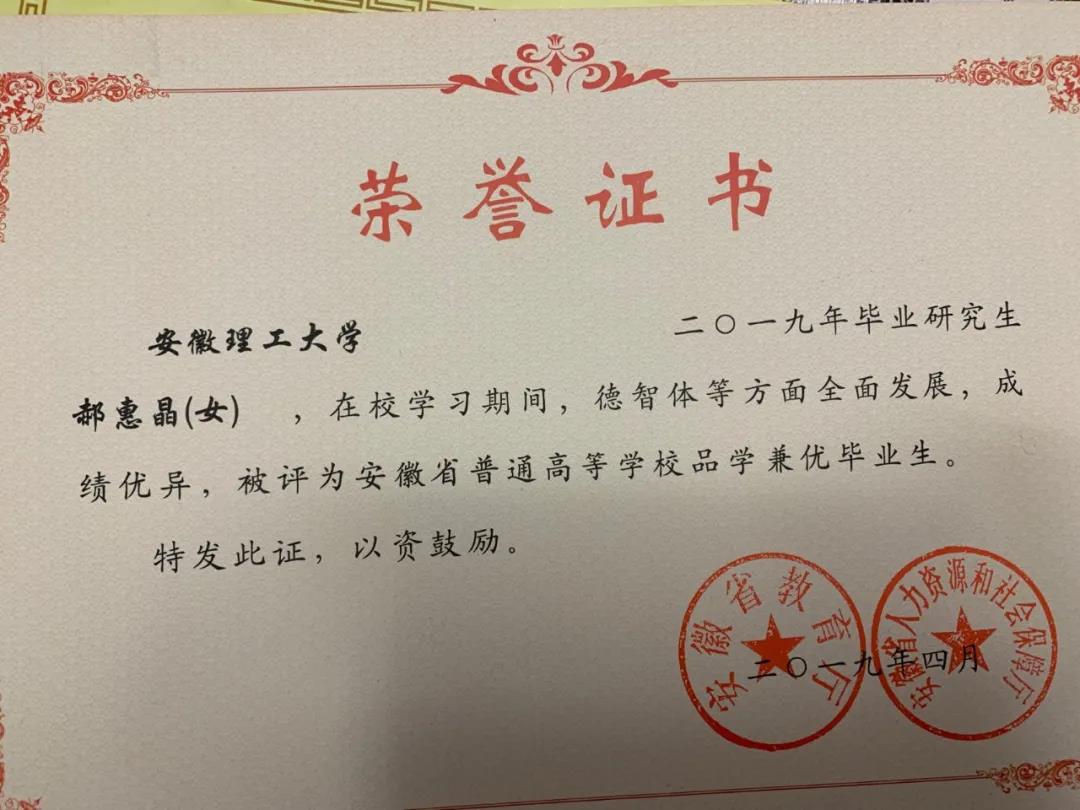 荣誉证书
安徽理工大学 二〇一九年毕业研究生
郝惠晶(女) ，在校学习期间，德智体等方面全面发展，成
绩优异，被评为安徽省普通高等学校品学兼优毕业生。
特发此证，以资鼓励。
安徽省教育厅
安徽省人力资源和社会保障厅
二〇一九年四月